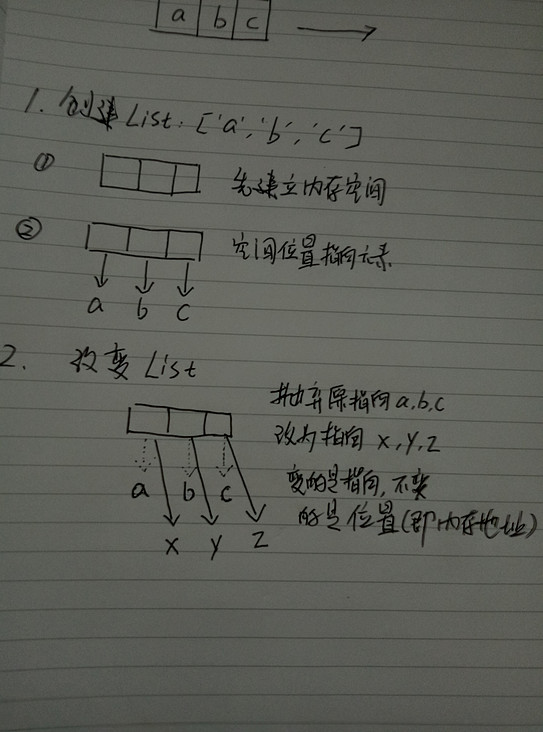 a b c
1. 创建 List: ['a', 'b', 'c']
① 先建立内存空间
② 空间位置指向元素
a b c
2. 改变 List
抛弃原指向 a,b,c
改为指向 x, y, z
变的是指向, 不变
的是位置(即内存地址)
a b c
x y z